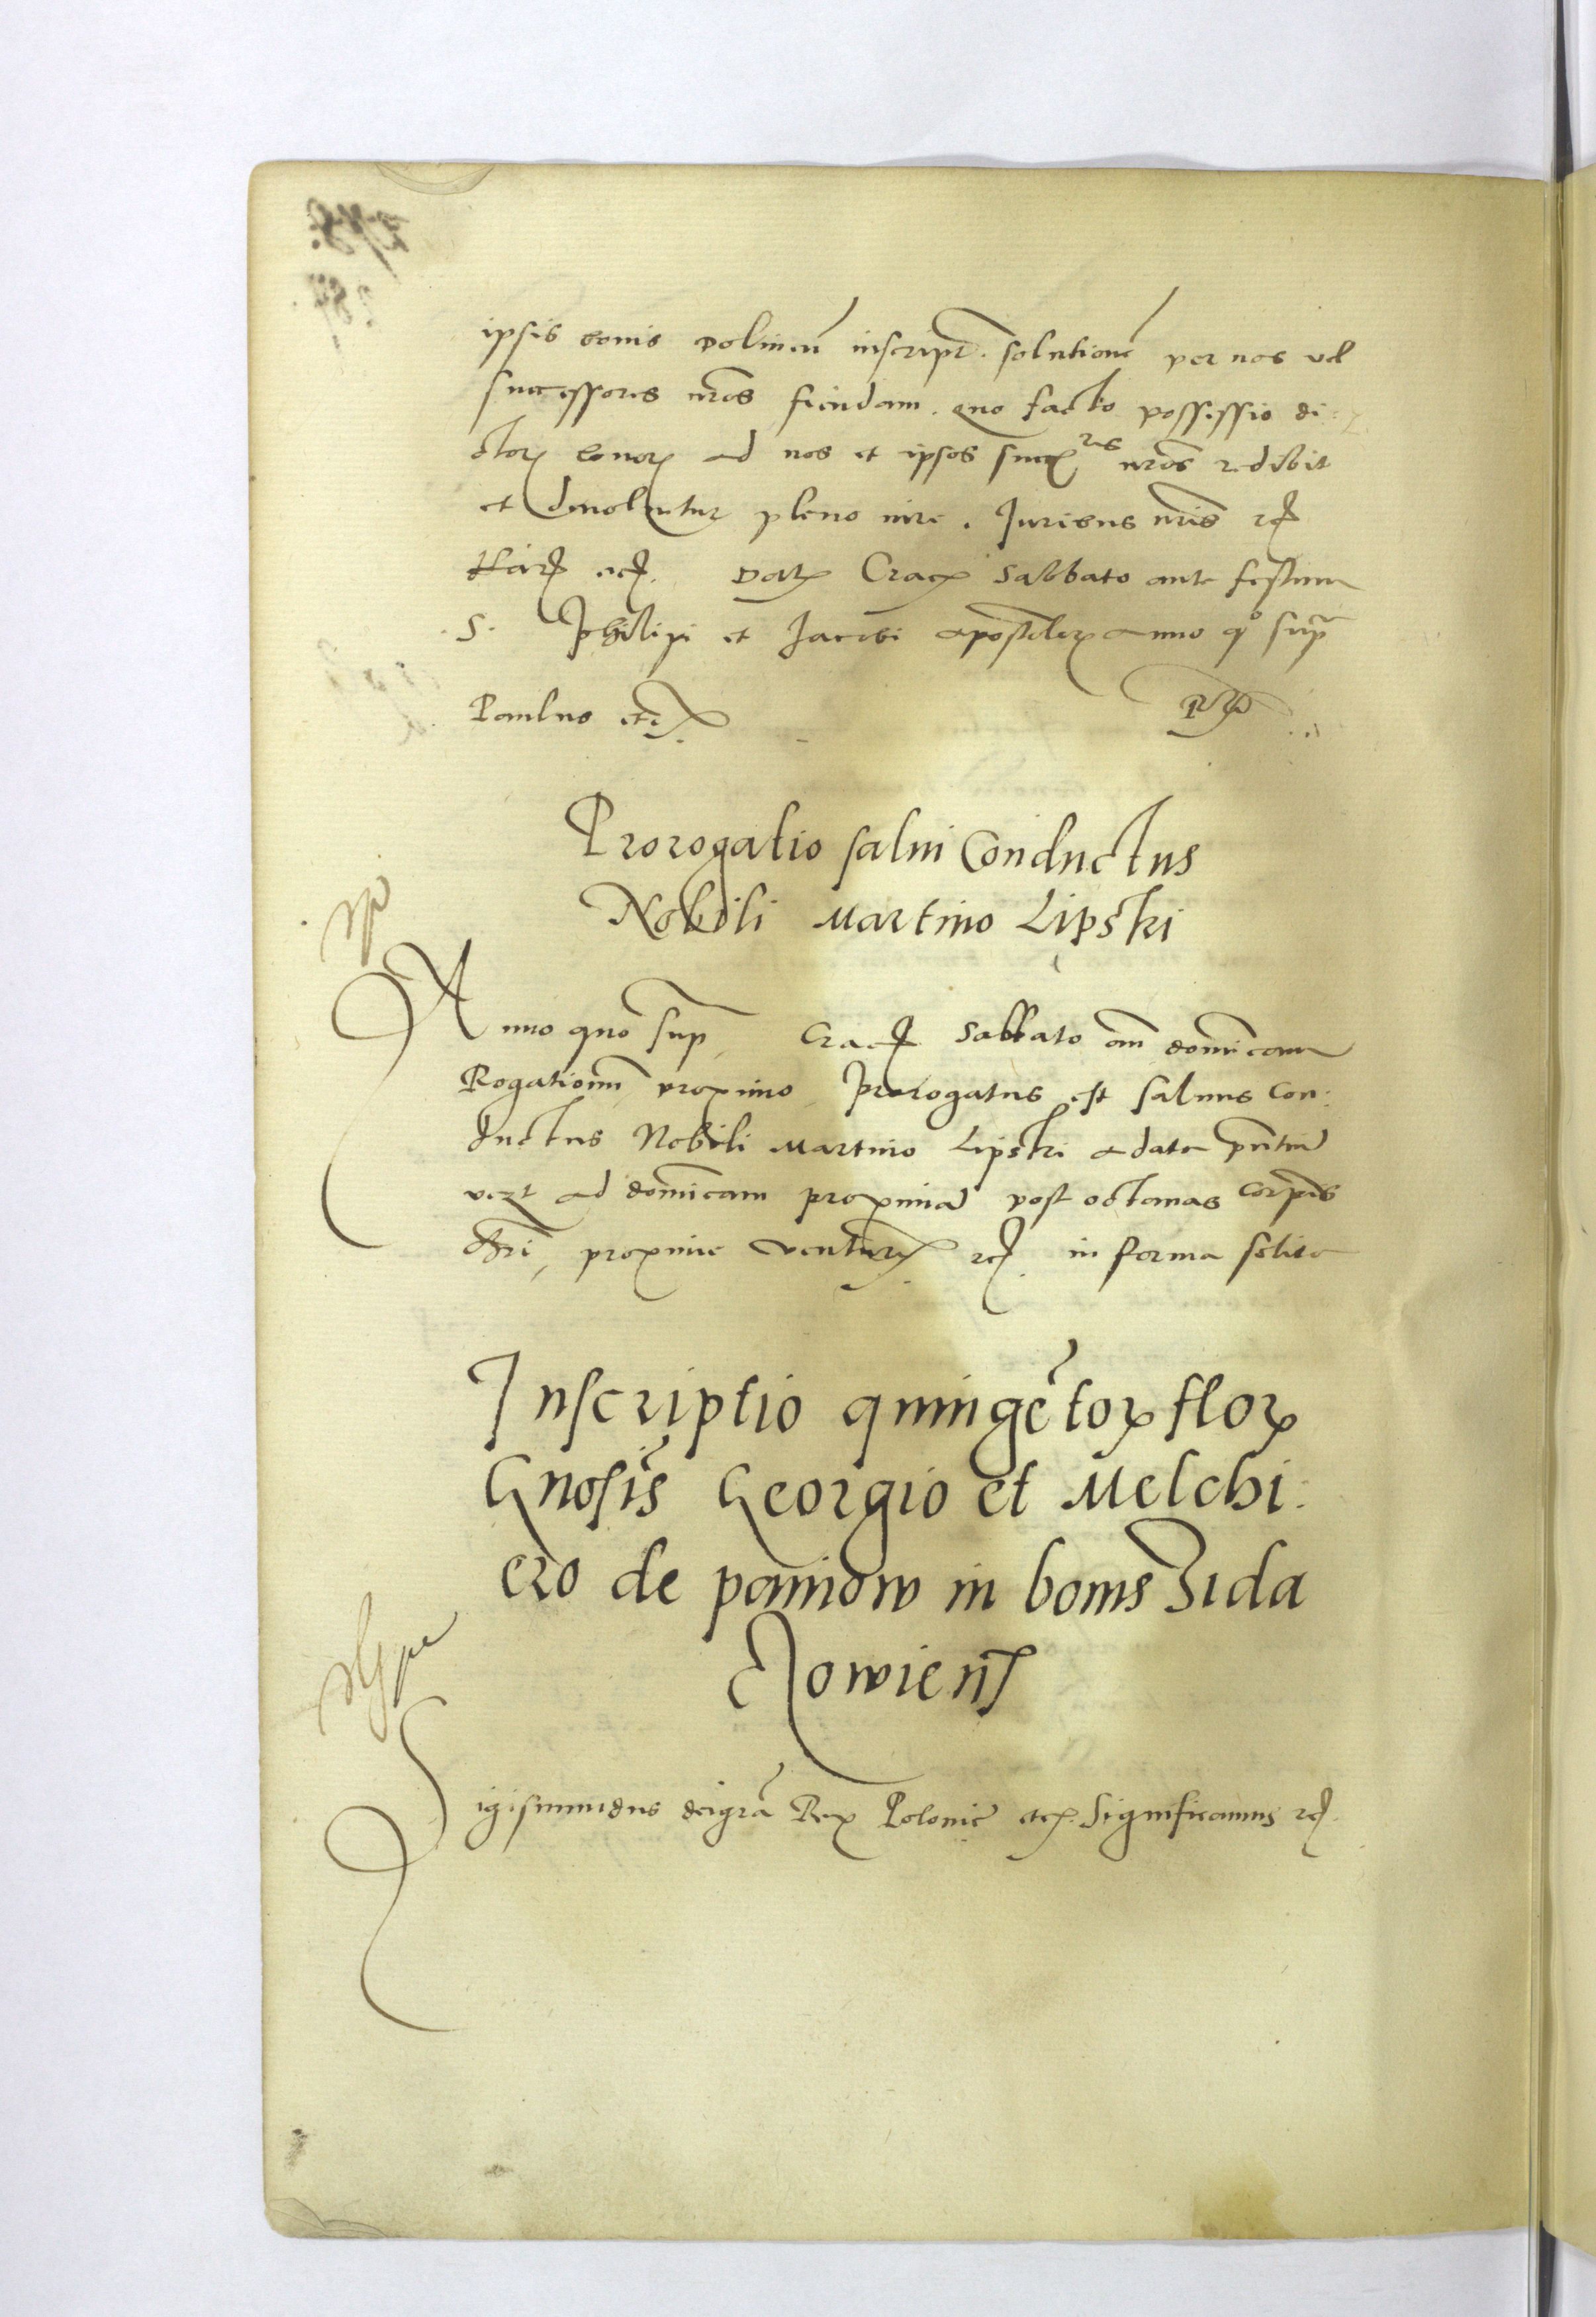 ipsis bonis dolinen̄ inscript. solutionē per nos vel
successores nr̄os fiendam. quo facto possessio di:
ctorꝝ bonorꝝ ad nos et ipsos succꝭres nr̄os redibit
et deuoluetur pleno iure. Juribus nr̄is rcꝭ
Harꝭ ecꝭ. Datꝭ Cracꝭ Sabbato ante festum
S. Philipi et Jacobi apostolorꝝ anno qo supra
Paulus etcꝭ.
Prorogatio salui Conductus
Nobili Martino Lipski
Anno quo sup̄ Cracꝭ Sabbato an̄ domīcam
Rogationū proximo Prorogatus est saluus con:
ductus Nobili Martino Lipski a data pn̄tiū
ad domīcam proximā post octauas corpīs
chri, proxime venturꝭ. rcꝭ. in forma solita
Inscriptio quingētoꝝ floꝝ
Gnosīs Georgio et Melchi:
ero de paniow in bonis Zida
czowienꝭ
Sigismundus deigrā Rex Polonie etcꝭ. Significamus rcꝭ.